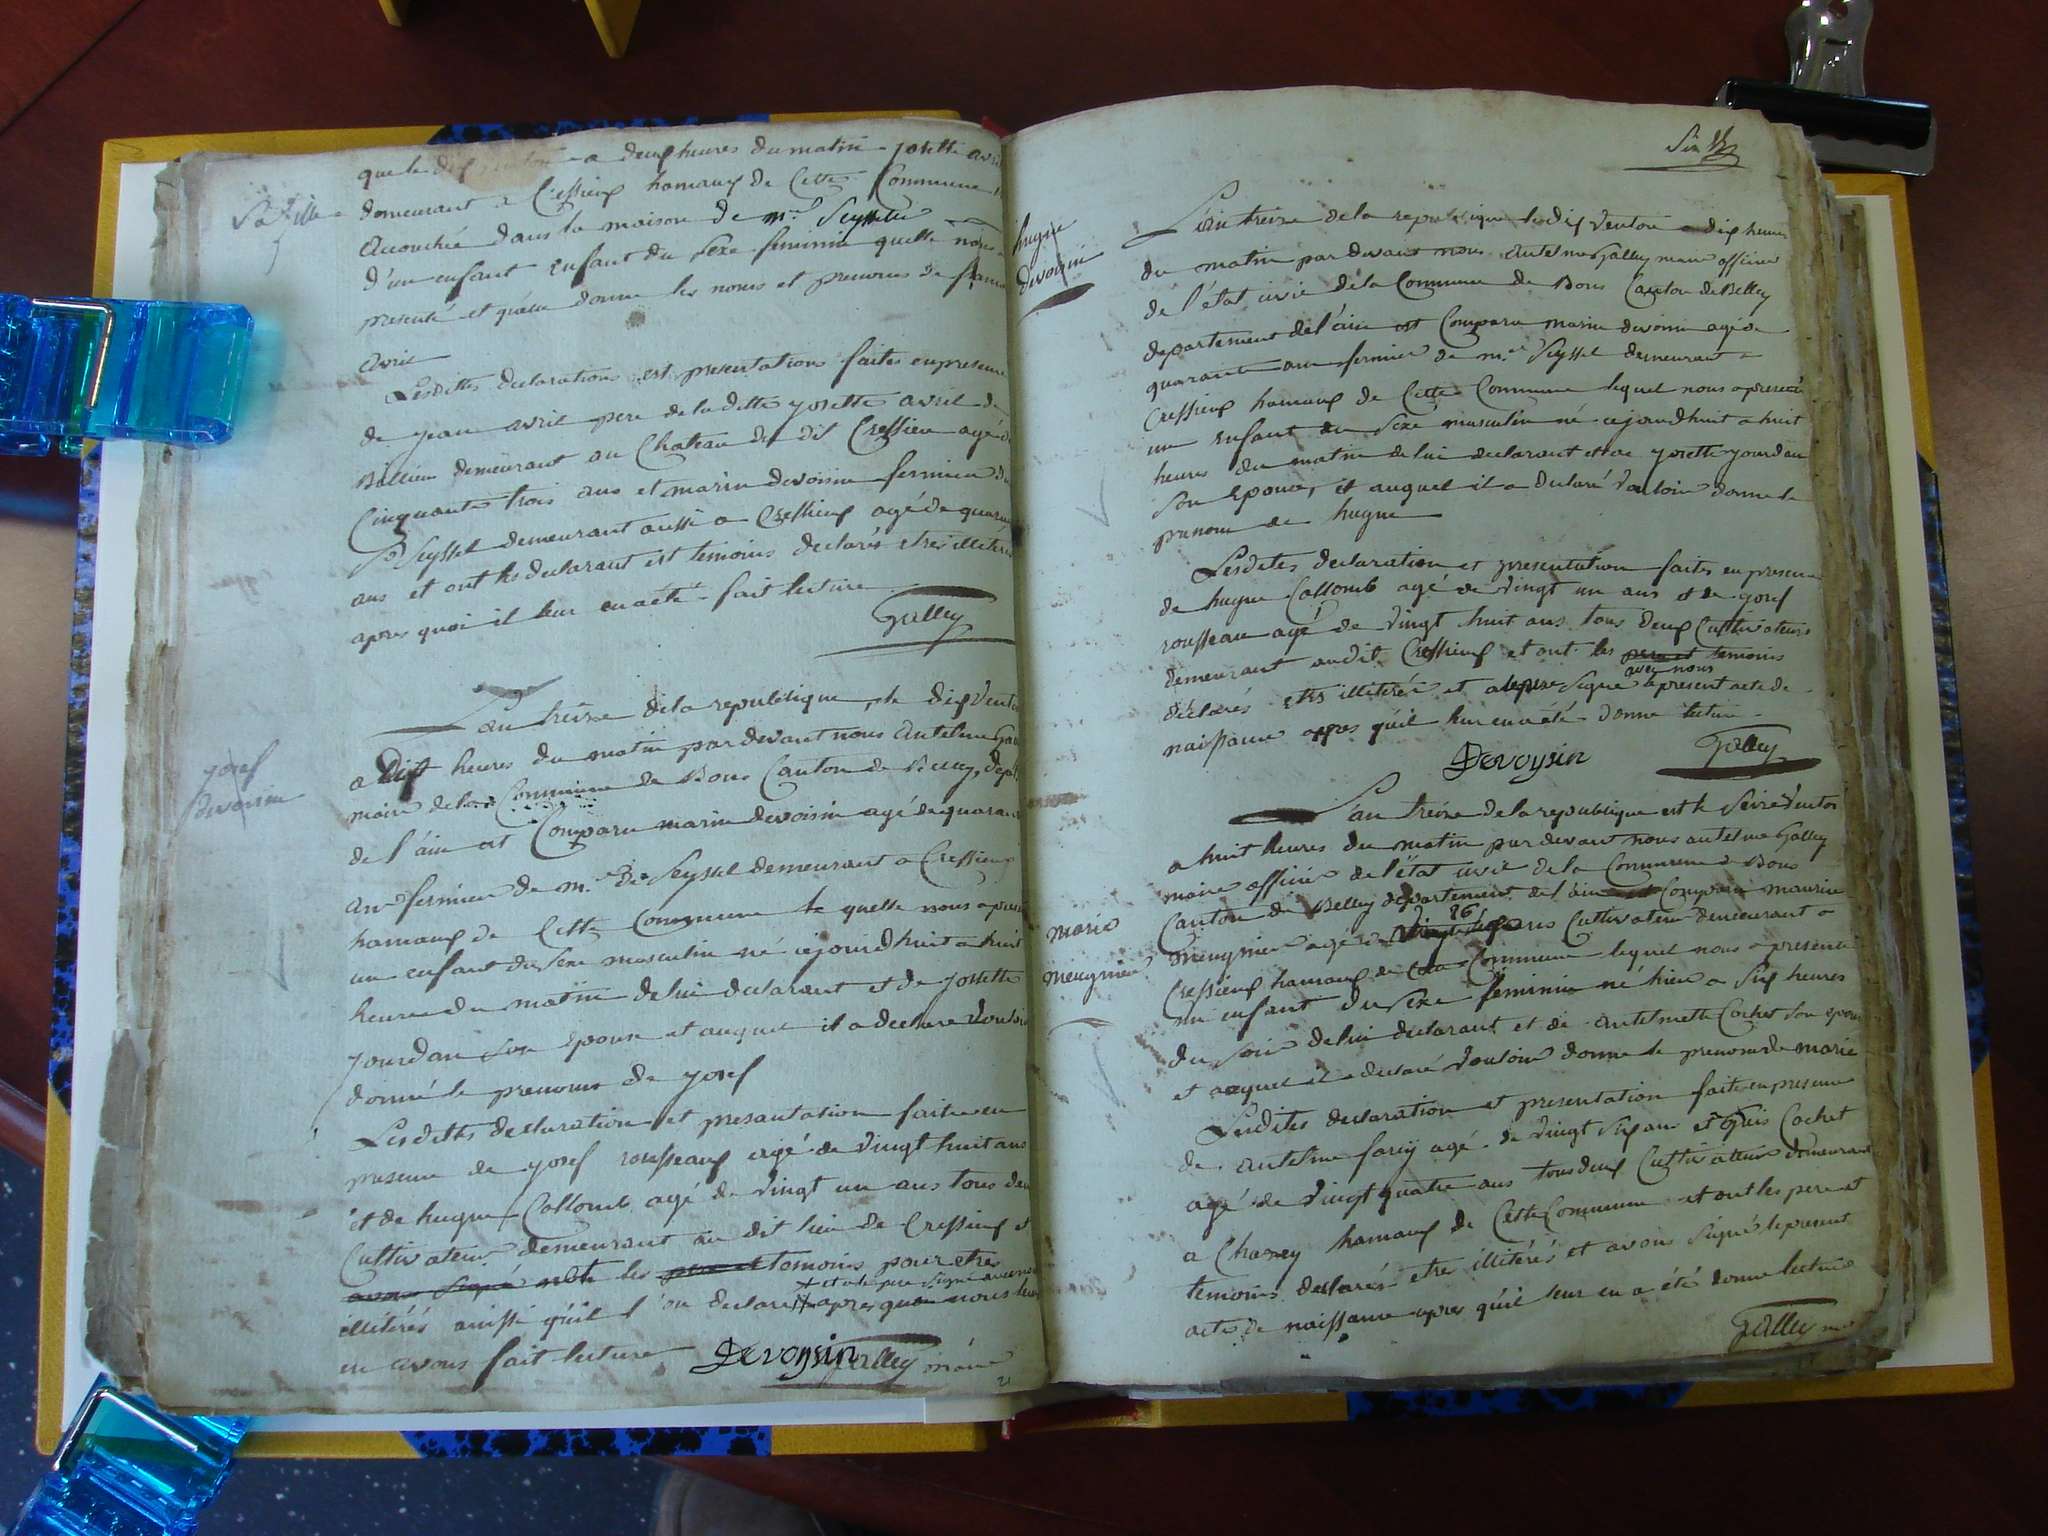 que le dix a deux heures du matin josette avril
Sa fille
demeurant a Cressieux hamaux de Cette Commune
accouchée dans la maison de mr. Seyssel
d'un enfant enfant du sexe feminin quelle nous a
presenté et quelle donne les noms et prenoms de
avril
Lesdittes declarations est presentations faites en presence
de jean avril pere de la ditte josette avril
demeurant au Chateau du dit Cressieu agé de
Cinquante trois ans et marin devoisin fermier de
Seyssel demeurant aussi a Cressieux agé de quarante
ans et ont les declarant est temoins declarés etres illiterés
apres quoi il leur en a eté fait lecture
Galley
L'an treize de la republique, le dix Ventos
a dix heures du matin par devant nous Antelme Galley
maire de la Commune de Bons Canton de Belley, dept
de l'ain est Comparu marin devoisin agé de quarante
josef
devoisin
an fermier de mr. De Seyssel demeurant a Cressieux
hamaux de Cette Commune le quelle nous a presenté
un enfant du sexe masculin né cejourdhuit a huit
heures du matin de lui declarant et de josette
jourdan son epouse et auquel il a declaré vouloir
donné le prenoms de josef
Lesdittes declaration et presantation faite en
presence de josef rousseaux agé de vingt huit ans
et de hugue Collomb agé de vingt un ans tous deux
Cultivateur demeurant au dit lieu de Cressieux et
avons signé les pere et temoins pour etres
et le pere signe avec nous
illitérés ainssi qu'il l'on declaré apres quoi nous leur
en avons fait lecture Devoysin Galley maire
21
Six
hugue
devoisin
L'an treize de la republique le dix ventose a dix heures
du matin par devant nous Antelme Galley maire officier
de l'état civil de la Commune de Bons Canton de Belley
departement de l'ain est Comparu marin devoisin agé de
quarante ans fermier de mr. Seyssel demeurant a
Cressieux hamaux de Cette Commune lequel nous a presenté
un enfant du sexe masculin né cejourdhuit a huit
heures du matin de lui declarant et de josette jourdan
son epouse, et auquel il a declaré vouloir donne le
prenom de hugue
Lesdites declaration et presentation faites en presence
de hugue Collomb agé de vingt un ans et de josef
rousseau agé de vingt huit ans tous deux Cultivateurs
demeurant audit Cressieux et ont les pere et temoins
avec nous
declarés etres illitérés et le pere signe le present acte de
naissance appres qu'il leur en a été donne lecture
Devoysin Galley
L'an treize de la republique est le seize Ventos
a huit heures du matin par devant nous antelme Galley
maire officier de l'état civil de la Commune de Bons
Canton de Belley departement de l'ain est Comparu maurice
marie
meugnier
26
meugnier agé de vingt six ans Cultivateur demeurant a
Cressieux hamaux de Cette Commune lequel nous a presenté
un enfant du sexe feminin né hier a six heures
du soir de lui declarant et de antelmette Cochet son epouse
et auquel il a declaré vouloir donne le prenom de marie
Lesdites declaration et presentation faite en presence
de antelme agé de vingt six ans et Cochet
agé de vingt quatre ans tous deux Cultivateur demeurant
a Chazey hamaux de Cette Commune et ont les pere et
temoins declarés etre illitérés et avons signé le present
acte de naissance apres qu'il leur en a été donne lecture
Galley